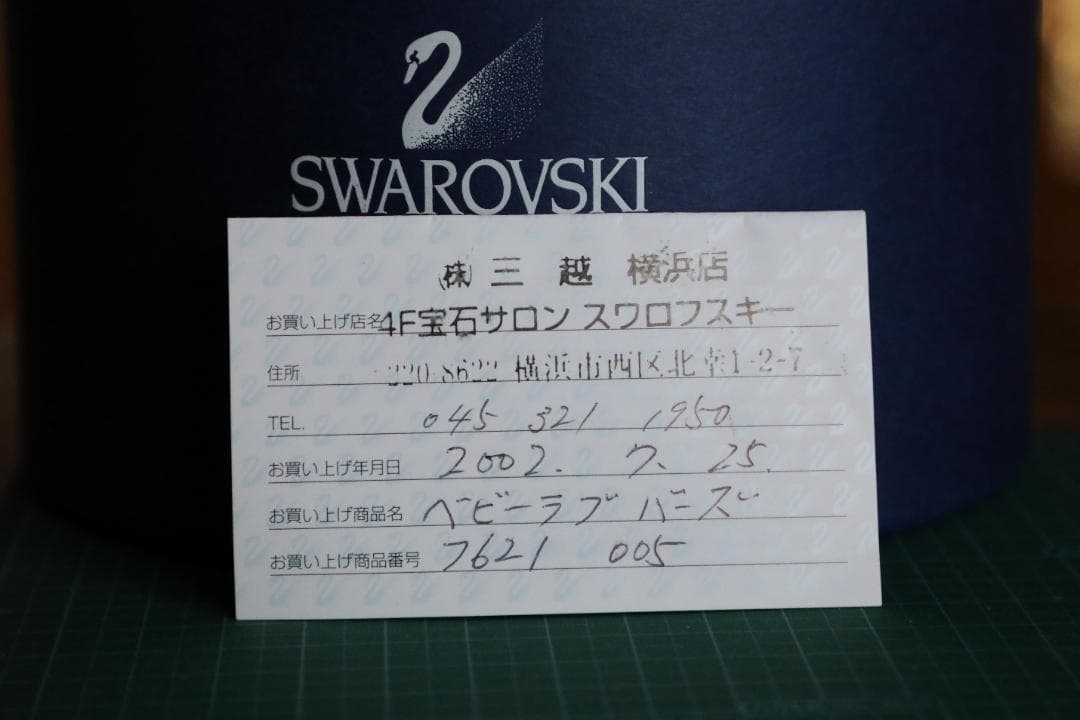 SWAROVSKI
(株) 三越 横浜店
お買い上げ店名 4F宝石サロン スワロフスキー
住所 220-8622 横浜市西区北幸1-2-7
TEL. 045 321 1950
お買い上げ年月日 2002. 7. 25.
お買い上げ商品名 ベビーラブ バーズ
お買い上げ商品番号 7621 005